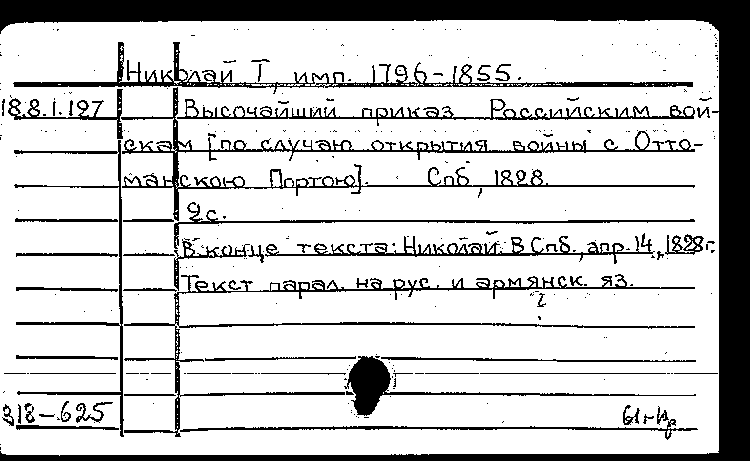 Николай I, имп. 1796-1855.
18.8.1.197 Высочайший приказ Российским вой-
скам [по случаю открытия войны с Отто-
манскою Портою]. Спб, 1828.
2с.
В конце текста: Николай. В Спб., апр. 14, 1828 г.
Текст парал. на рус. и армянск. яз.
?
318-625